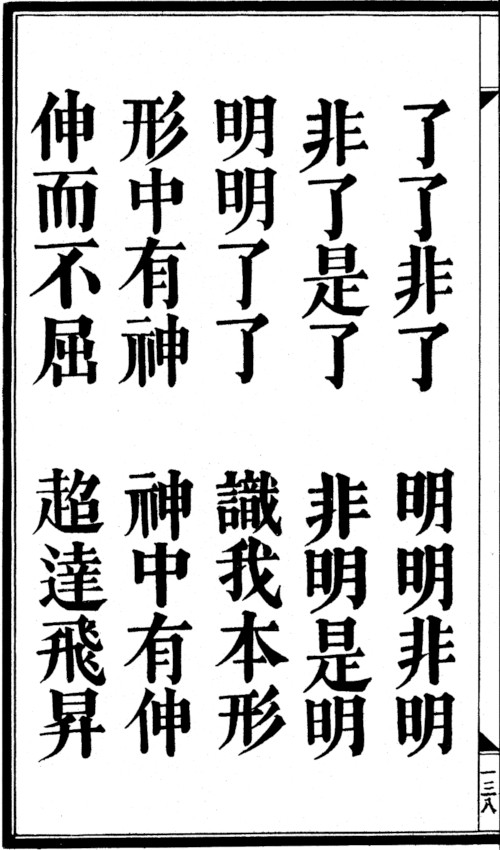 了了非了 明明非明
非了是了 非明是明
明明了了 識我本形
形中有神 神中有伸
伸而不屈 超達飛昇
一三八